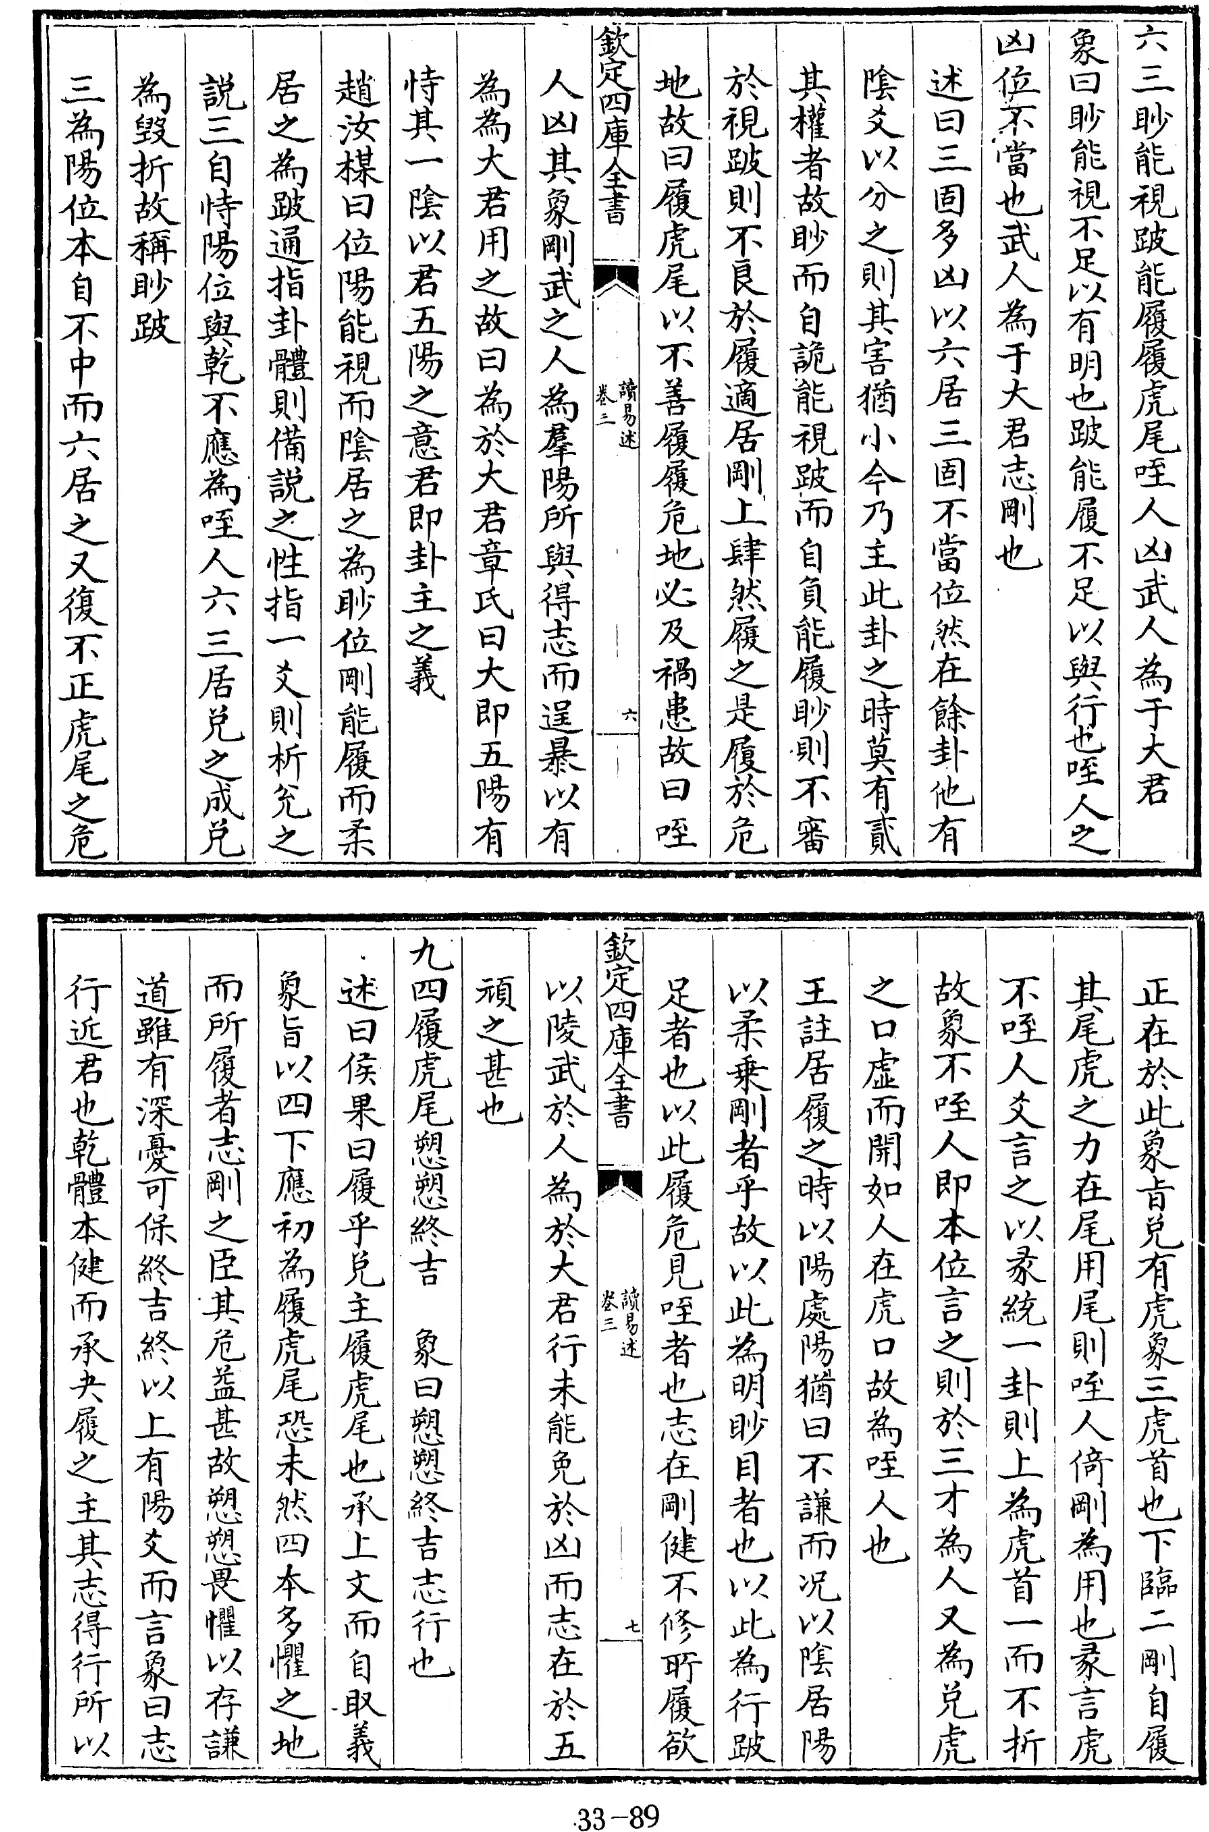 六三眇能視跛能履履虎尾咥人凶武人為于大君
象曰眇能視不足以有明也跛能履不足以與行也咥人之
凶位不當也武人為于大君志剛也
述曰三固多凶以六居三固不當位然在餘卦他有
陰爻以分之則其害猶小今乃主此卦之時莫有貳
其權者故眇而自詭能視跛而自負能履眇則不審
於視跛則不良於履適居剛上肆然履之是履於危
地故曰履虎尾以不善履履危地必及禍患故曰咥
欽定四庫全書
讀易述
卷三
六
人凶其象剛武之人為羣陽所與得志而逞暴以有
為為大君用之故曰為於大君章氏曰大即五陽有
恃其一陰以君五陽之意君即卦主之義
趙汝楳曰位陽能視而陰居之為眇位剛能履而柔
居之為跛通指卦體則備說之性指一爻則析兊之
說三自恃陽位與乾不應為咥人六三居兑之成兑
為毀折故稱眇跛
三為陽位本自不中而六居之又復不正虎尾之危
正在於此象旨兑有虎象三虎首也下臨二剛自履
其尾虎之力在尾用尾則咥人倚剛為用也彖言虎
不咥人爻言之以彖統一卦則上為虎首一而不折
故象不咥人即本位言之則於三才為人又為兑虎
之口虛而開如人在虎口故為咥人也
王註居履之時以陽處陽猶曰不謙而况以陰居陽
以柔乗剛者乎故以此為明眇目者也以此為行跛
足者也以此履危見咥者也志在剛健不修所履欲
欽定四庫全書
讀易述
卷三
七
以陵武於人為於大君行未能免於凶而志在於五
頑之甚也
九四履虎尾愬愬終吉　象曰愬愬終吉志行也
述曰侯果曰履乎兑主履虎尾也承上文而自取義
象旨以四下應初為履虎尾恐未然四本多懼之地
而所履者志剛之臣其危益甚故愬愬畏懼以存謙
道雖有深憂可保終吉終以上有陽爻而言象曰志
行近君也乾體本健而承夬履之主其志得行所以
33-89